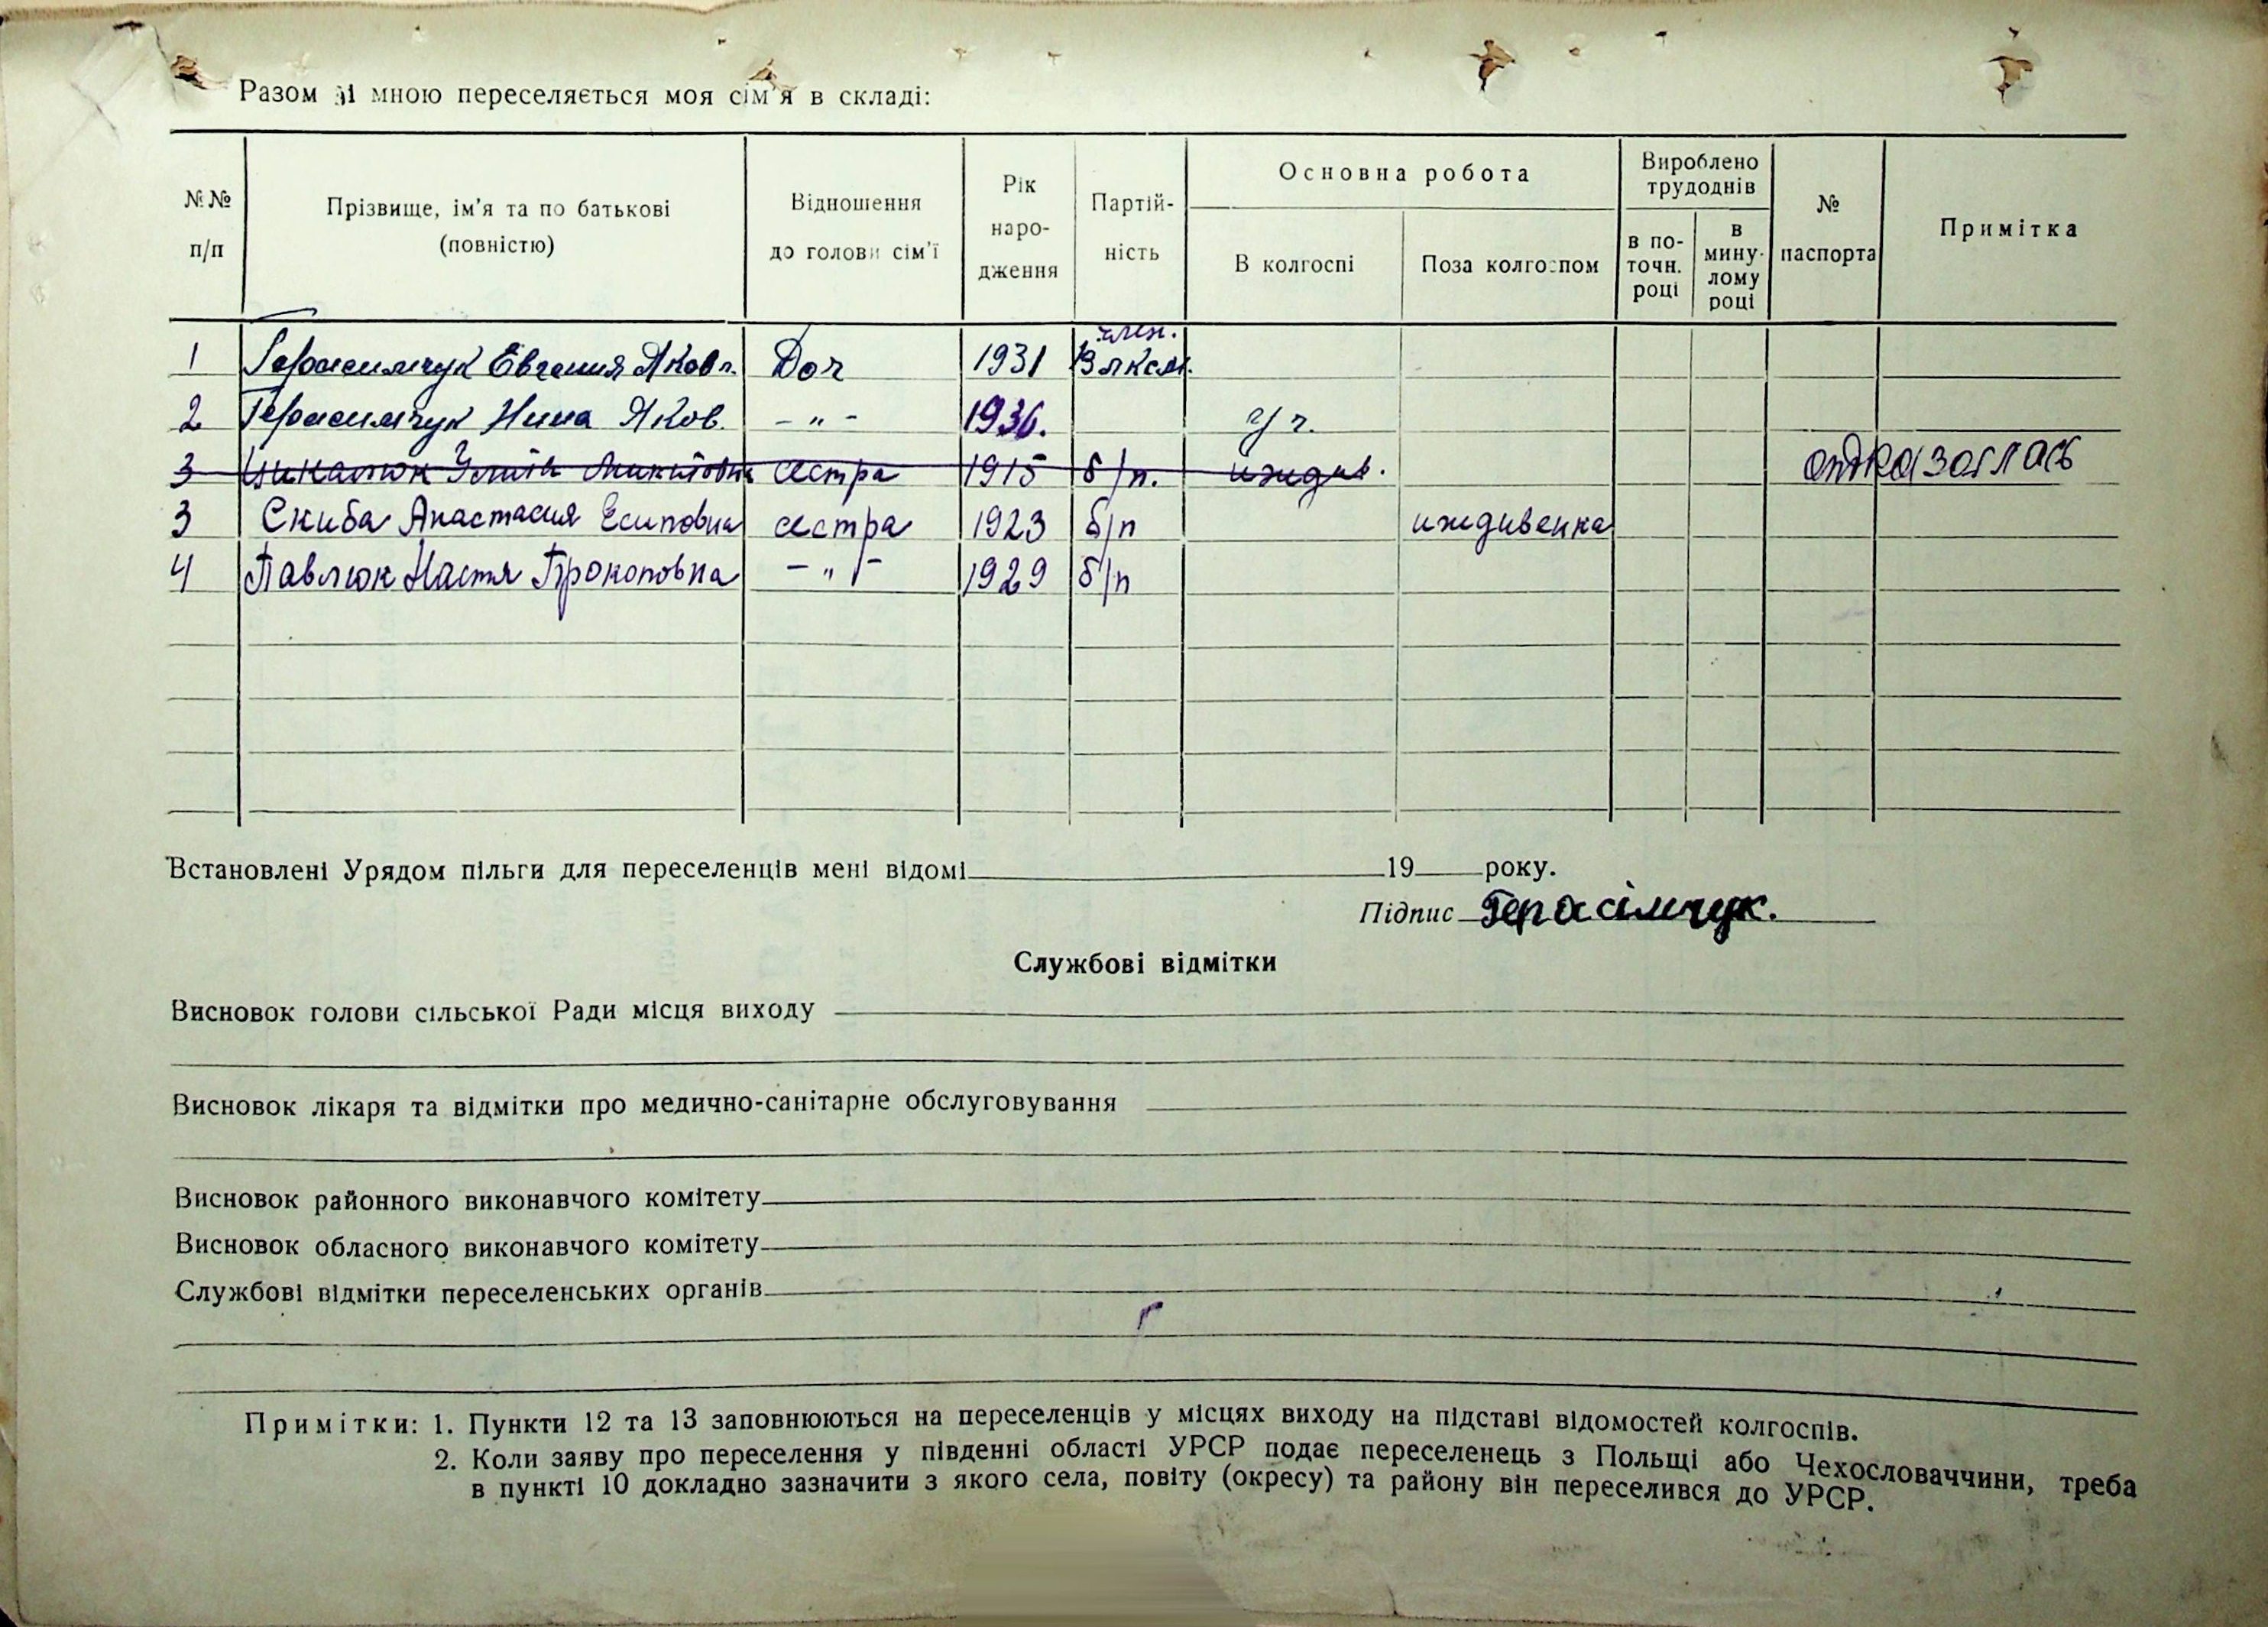 Разом зі мною переселяється моя сім'я в складі:
№№ п/п
Прізвище, ім'я та по батькові (повністю)
Відношення до голови сім'ї
Рік народження
Партійність
Основна робота
В колгоспі
Поза колгоспом
Вироблено трудоднів
в поточн. році
в минулому році
№ паспорта
Примітка
1 Герасимчук Евгения Яковл. Доч 1931 член. Влксм.
2 Герасимчук Нина Яков. -"- 1936. уч.
3 Устин Микитовна сестра 1915 б/п. иждив. отказалась
3 Скиба Анастасия Есиповна сестра 1923 б/п иждивенка
4 Павлюк Настя Прокоповна -"- 1929 б/п
Встановлені Урядом пільги для переселенців мені відомі 19 року.
Підпис Герасімчук.
Службові відмітки
Висновок голови сільської Ради місця виходу
Висновок лікаря та відмітки про медично-санітарне обслуговування
Висновок районного виконавчого комітету
Висновок обласного виконавчого комітету
Службові відмітки переселенських органів
Примітки: 1. Пункти 12 та 13 заповнюються на переселенців у місцях виходу на підставі відомостей колгоспів.
2. Коли заяву про переселення у південні області УРСР подає переселенець з Польщі або Чехословаччини, треба
в пункті 10 докладно зазначити з якого села, повіту (окресу) та району він переселився до УРСР.